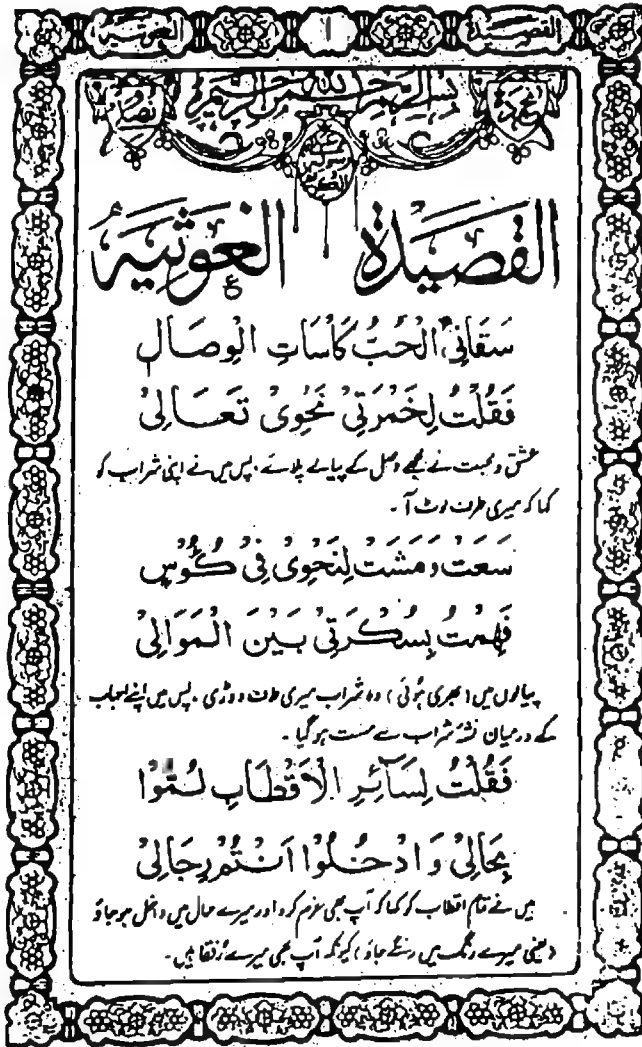 القصيدة
١
الغوثيه
بسم الله الرحمن الرحيم
نحمده
القصيدة الغوثيه
سَقَانِي الْحُبُّ كَأْسَاتِ الْوِصَالِ
فَقُلْتُ لِخَمْرَتِيْ نَحْوِيْ تَعَالِيْ
عشق و محبت نے مجھے وصل کے پیالے پلائے ، پس میں نے اپنی شراب کو
کہا کہ میری طرف لوٹ آ ۔
سَعَتْ وَ مَشَتْ لِنَحْوِيْ فِيْ كُؤُوْسٍ
فَهِمْتُ بِسُكْرَتِيْ بَيْنَ الْمَوَالِيْ
پیالوں میں ( بھری ہوئی ) وہ شراب میری طرف دوڑی ، پس میں اپنے احباب
کے درمیان نشۂ شراب سے مست ہو گیا ۔
فَقُلْتُ لِسَآئِرِ الْاَقْطَابِ لُمُّوْا
بِحَالِيْ وَ ادْخُلُوْا اَنْتُمْ رِجَالِيْ
میں نے تمام اقطاب کو کہا کہ آپ بھی عزم کرو اور میرے حال میں داخل ہو جاؤ
( یعنی میرے رنگ میں رنگے جاؤ ) کیونکہ آپ بھی میرے رفقا ہیں ۔